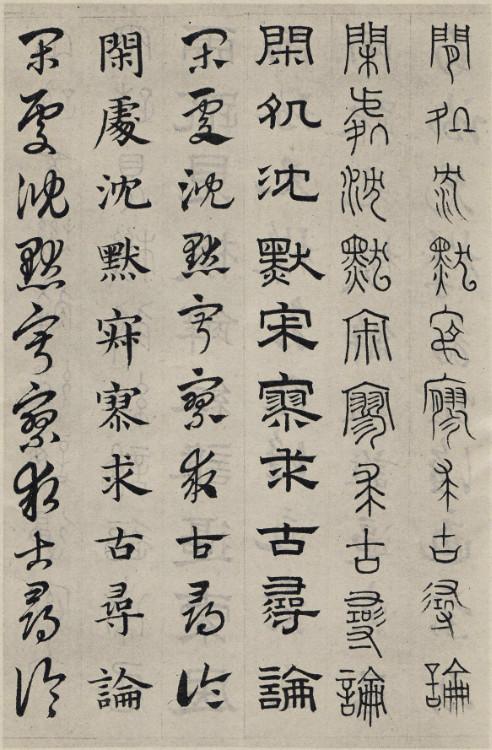 閒処沈默寂寥求古尋論
閑處沈默宋寥求古尋論
閑処沈默宋寥求古尋論
閑處沈默寂寥求古尋論
閑處沈默寂寥求古尋論
閑處沈默寂寥求古尋論